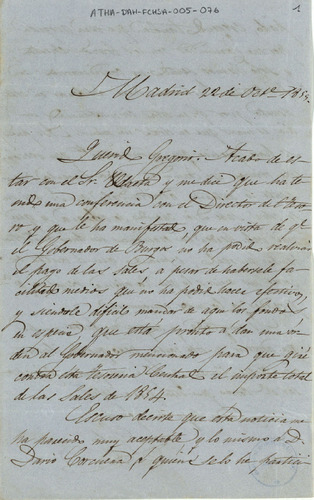 ATHA-DAH-FCHSA-005-076
1
Madrid 22 de Oct.e 1854.
Querido Gregorio: Acabo de es-
tar con el Sr. y me dice que ha te-
nido una conferencia con el Director del Teso-
ro y que le ha manifestado que en vista de q.e
el Gobernador de Burgos no ha podido realizar
el pago de las Sales a pesar de habersele fa-
cilitado medios que no ha podido hacer efectivos,
y siendole dificil mandar de aqui los fondos
en especie que está pronto a dar una or-
den al Gobernador mencionado para que gire
contra esta Tesoreria Central el importe total
de las Sales de 1854.
Escuso decirte que esta noticia me
ha parecido muy aceptable y lo mismo a D.
Dario Corcuera a quien se lo he partici-